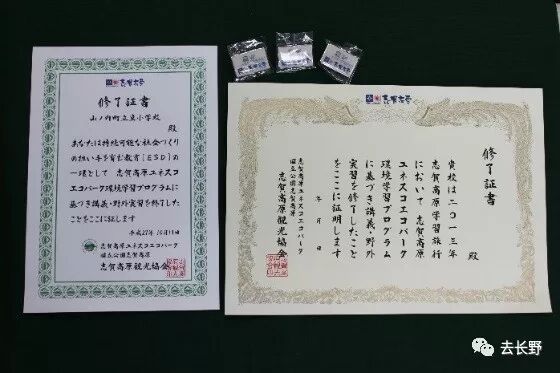 志賀高原
修了証書
山ノ内町立東小学校
殿
あなたは持続可能な社会づくり
の担い手を育む教育[ESD]の
一環として 志賀高原ユネスコ
エコパーク環境学習プログラムに
基づき講義・野外実習を修了した
ことをここに証します
平成27年10月15日
志賀高原ユネスコエコパーク
国立公園志賀高原
志賀高原観光協会
志賀高原
修了証書
殿
貴校は二〇一三年
において 志賀高原学習旅行
ユネスコエコパーク
環境学習プログラム
に基づき講義・野外
実習を修了したこと
をここに証明します
年 月 日
志賀高原ユネスコエコパーク
国立公園志賀高原
志賀高原観光協会
去长野